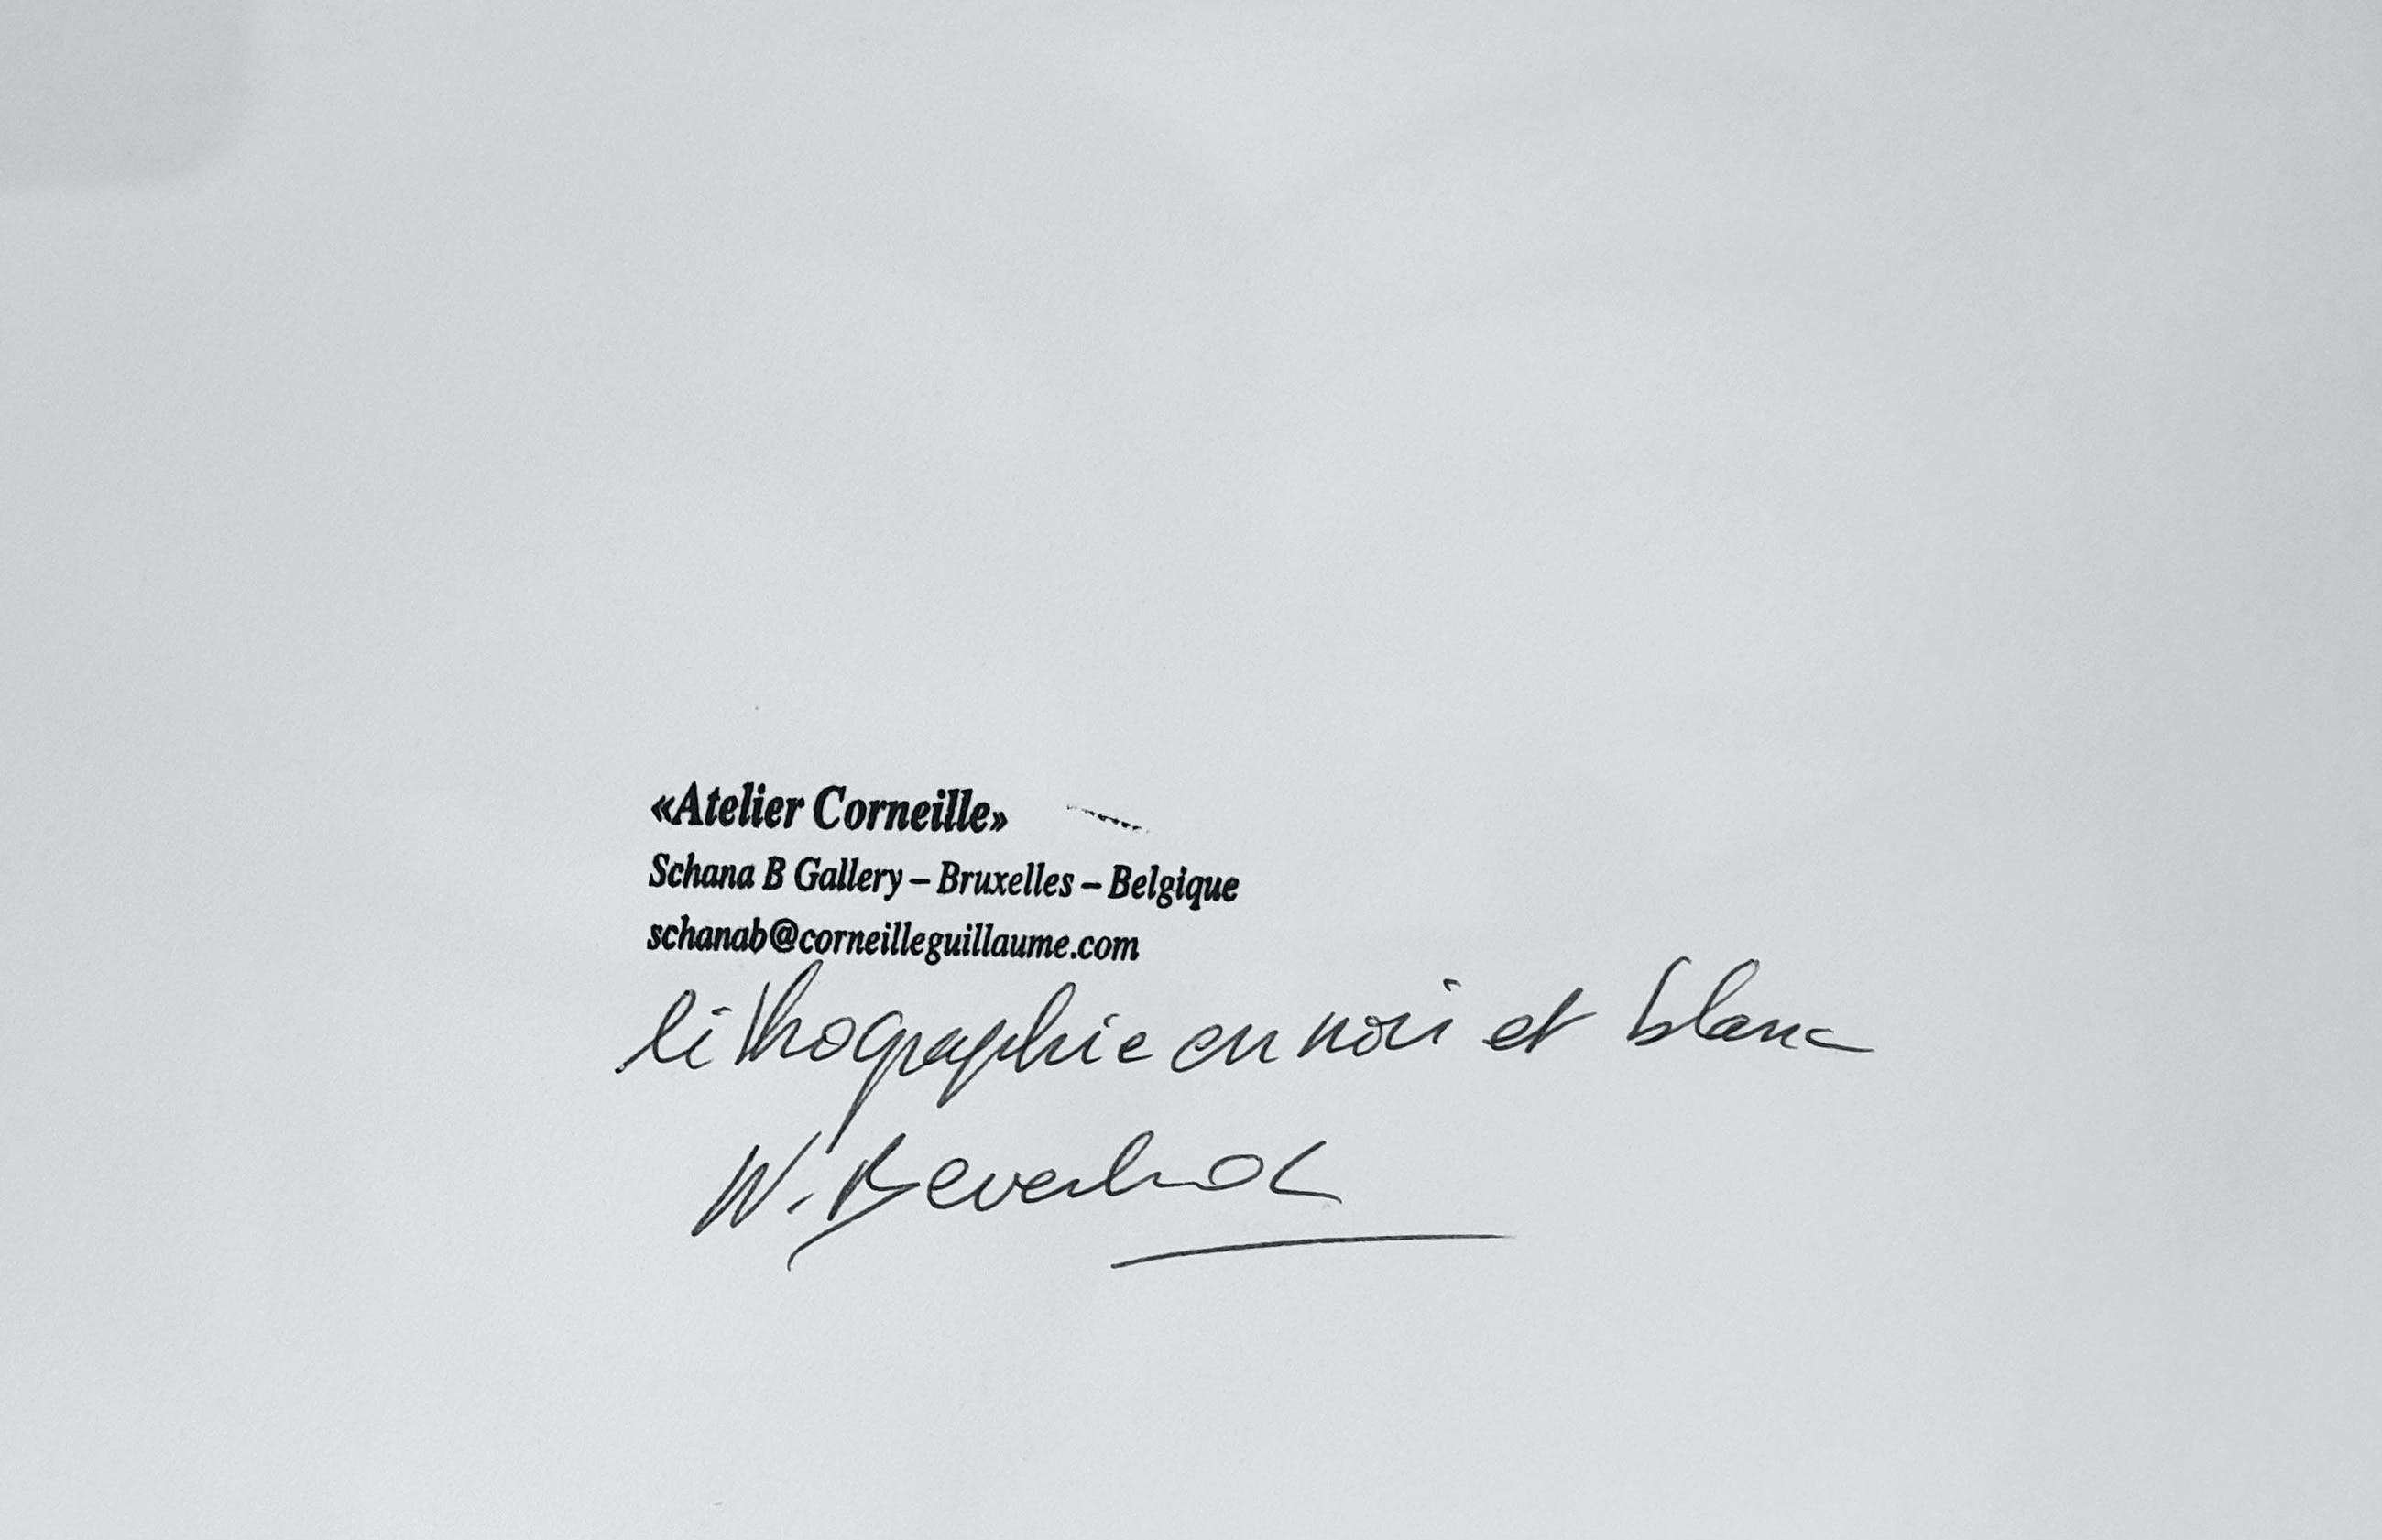 «Atelier Corneille»
Schana B Gallery – Bruxelles – Belgique
schanab@corneilleguillaume.com
lithographie en noir et blanc
W.